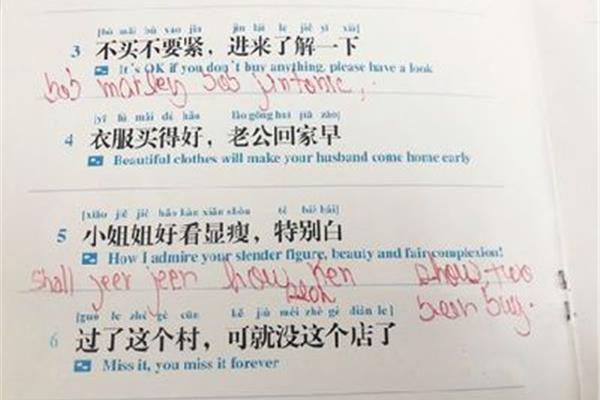 [bù mǎi bù yào jǐn jìn lái le jiě yí xià]
3 不买不要紧，进来了解一下
It's OK if you don't buy anything, please have a look
bob marley bob jintonic,
[yī fú mǎi dé hǎo lǎo gōng huí jiā zǎo]
4 衣服买得好，老公回家早
Beautiful clothes will make your husband come home early
[xiǎo jiě jiě hǎo kàn xiǎn shòu tè bié bái]
5 小姐姐好看显瘦，特别白
How I admire your slender figure, beauty and fair complexion!
shall jeer jeer how show, two
been buy.
[guò le zhè gè cūn kě jiù méi zhè gè diàn le]
6 过了这个村，可就没这个店了
Miss it, you miss it forever